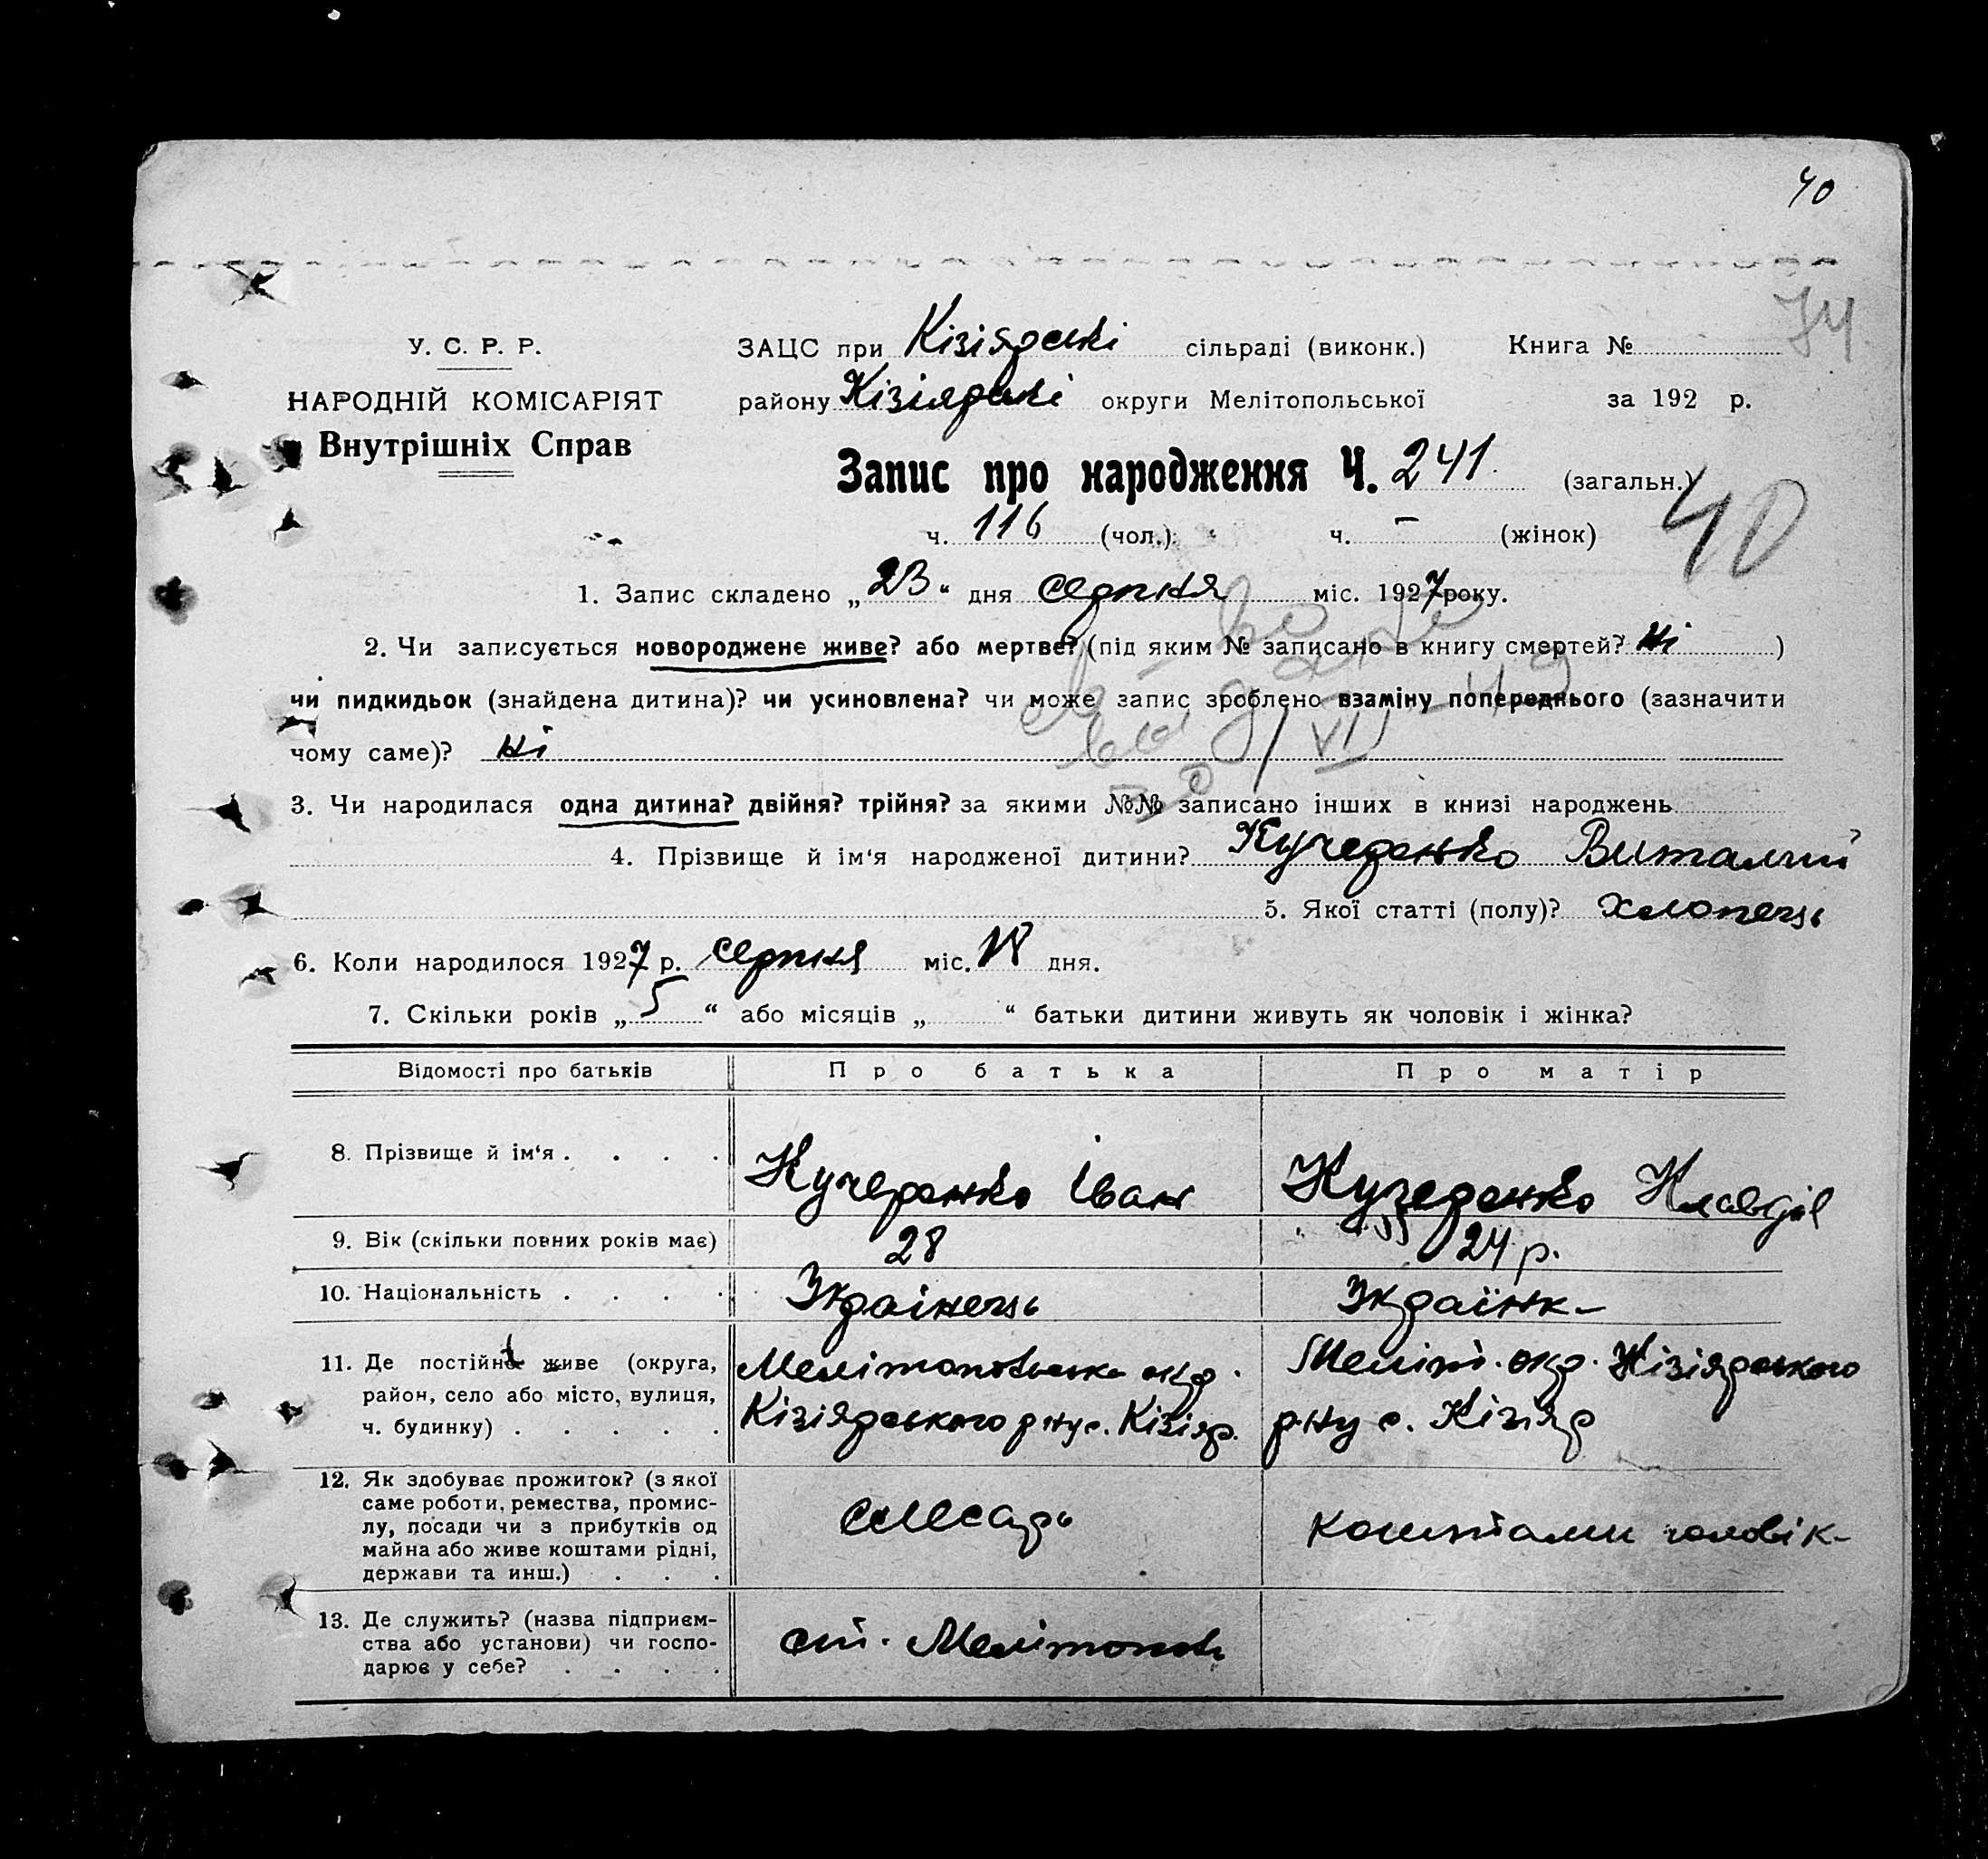 40
74
У. С. Р. Р.
НАРОДНІЙ КОМІСАРІЯТ
Внутрішніх Справ
ЗАЦС при Кізіярські сільраді (виконк.) Книга №
району Кізіярські округи Мелітопольської за 192 р.
Запис про народження Ч. 241 (загальн.)
40
ч. 116 (чол.) ч. – (жінок)
1. Запис складено „23“ дня серпня міс. 1927 року.
2. Чи записується новороджене живе? або мертве? (під яким № записано в книгу смертей? Ні )
чи пидкидьок (знайдена дитина)? чи усиновлена? чи може запис зроблено взаміну попереднього (зазначити
чому саме)? Ні
VII
3. Чи народилася одна дитина? двійня? трійня? за якими №№ записано інших в книзі народжень
4. Прізвище й ім‘я народженої дитини? Кучеренко Виталий
5. Якої статті (полу)? Хлопець
6. Коли народилося 1927 р. серпня міс. 18 дня.
7. Скільки років „5“ або місяців „ “ батьки дитини живуть як чоловік і жінка?
Відомості про батьків Про батька Про матір
8. Прізвище й ім‘я . . . . Кучеренко Іван Кучеренко Клавдія
9. Вік (скільки повних років має) 28 24 р.
10. Національність . . . . Українець Українк-
11. Де постійно живе (округа, Мелітопольська окр. Меліт. окр. Кізіярського
район, село або місто, вулиця, Кізіярського р-ну с. Кізіяр. р-ну с. Кізіяр
ч. будинку) . . . . .
12. Як здобуває прожиток? (з якої
саме роботи, ремества, промис-
лу, посади чи з прибутків од слесарь коштами чоловік-
майна або живе коштами рідні,
держави та инш.) . . .
13. Де служить? (назва підприєм-
ства або установи) чи госпо- ст. Мелітополь
дарює у себе? . . . .